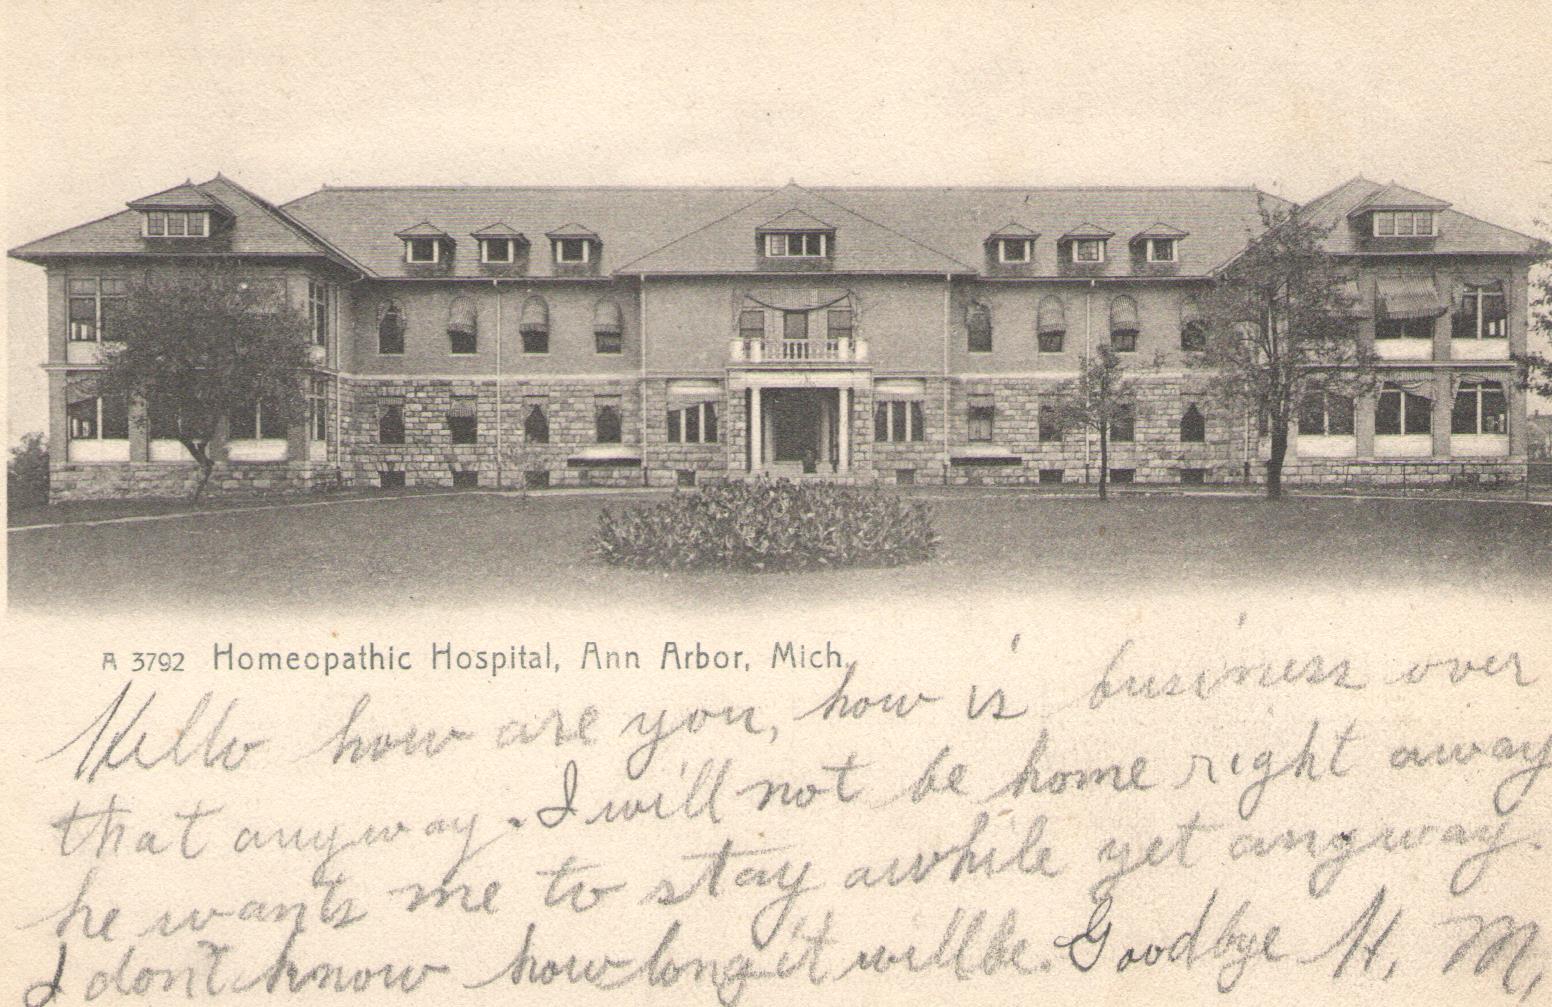 A 3792 Homeopathic Hospital, Ann Arbor, Mich.
Hello how are you, how is business over
that anyway. I will not be home right away
he wants me to stay awhile yet anyway.
I don't know how long it will be. Goodbye H. M.